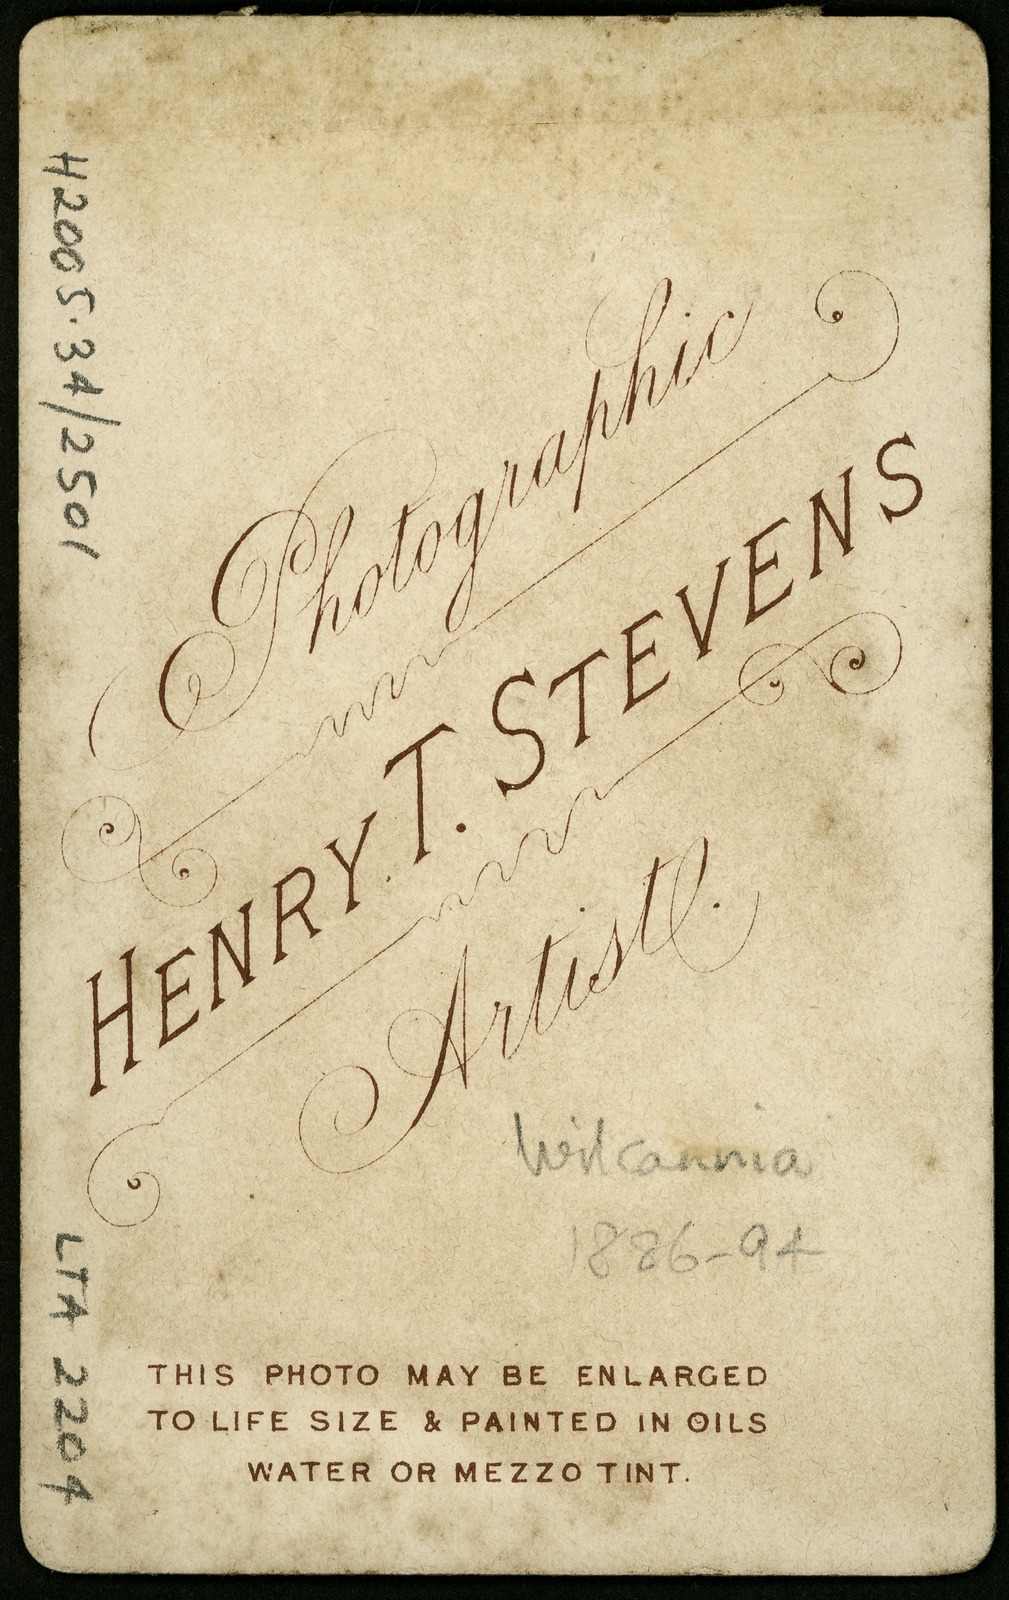 H2005.34/2501
Photographic
HENRY. T. STEVENS
Artist.
Wilcannia
1886-94
LTA 2204
THIS PHOTO MAY BE ENLARGED
TO LIFE SIZE & PAINTED IN OILS
WATER OR MEZZO TINT.